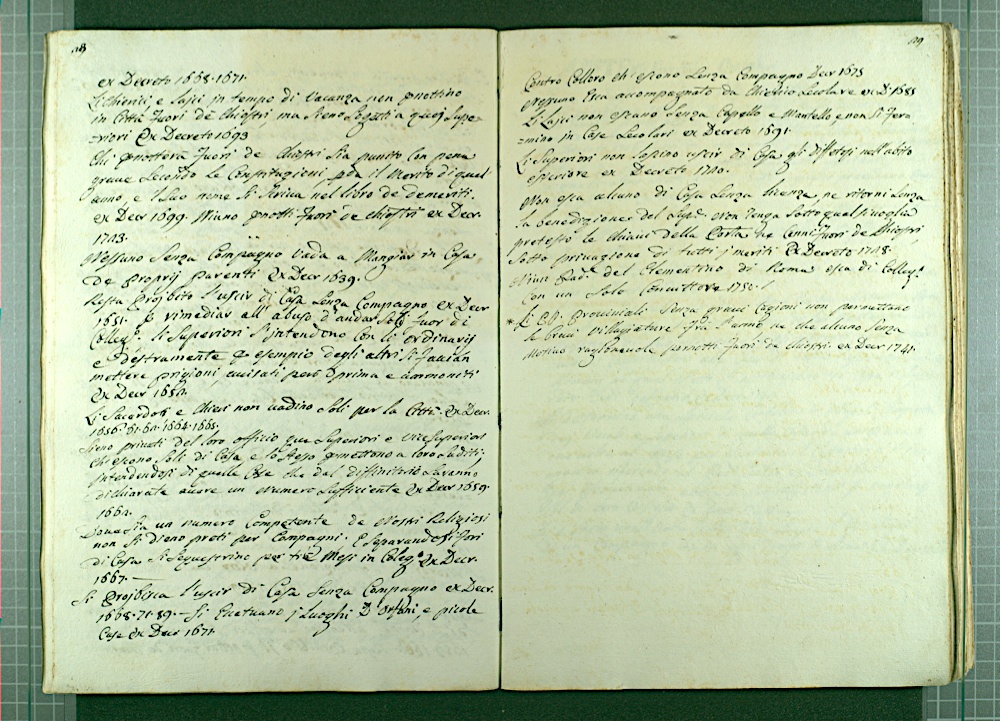 118
ex Decreto 1668. 1671.
Li Chierici, e Laici in tempo di Vacanza non pnottino
in Città fuori de Chiostri ma sieno sogetti a quei Supe=
=riori Ex Decreto 1693
Chi pnotterà fuori de Chiostri sia punito con pena
grave secondo le Constitutioni, poi il merito di quel
anno, e 'l suo nome si scriva nel libro de demeriti.
ex Decr 1699. Niuno pnotti fuori de Chiostri ex Decr.
1743.
Nessuno senza Compagno vada a Mangiar in Casa
de proprij parenti Ex Decr 1639.
Resta proibito l'uscir di Casa senza Compagno ex Decr
1651. E rimediar all'abuso d'andar soli fuor de
Colleg. li Superiori s'intendino con li ordinarij
e destramente p esempio degli altri si faccian
mettere prigioni, avisati però prima e ammoniti
Ex Decr 1650.
Li Sacerdoti e Chieri non vadino soli per la Città. Ex Decr.
1656. 61. 60. 1664. 1665.
Sieno privati del loro officio que Superiori e Vicesuperiori
che escono soli di Casa e lo stesso pmettono a loro sudditi.
Intendendosi di quelle Case che dal diffinitorio saranno
dichiarate avere un numero sufficiente Ex Decr 1659.
1662.
Dove sia un numero competente de Nostri Religiosi
non si dieno preti per Compagni. E separandosi fuori
di Casa si sequestrino per tre Mesi in Coleg.o Ex Decr.
1667.
Si proibisca l'uscir di Casa senza Compagno ex Decr.
1668. 71. 89. Si Eccetuano i Luoghi D'Orfani, e picole
Case Ex Decr 1671.
119
Contro Colloro ch'escono senza Compagno Decr 1675
Nessuno Esca accompagnato da Chierico secolare ex D. 1685
Li Laici non escano senza Capello e Mantello e non si fer=
=mino in Case secolari ex Decreto 1691.
Li Superiori non lascino uscir di Casa gli diffetosi nell'abito
esteriore ex Decreto 1740.
Non esca alcuno di Casa senza licenza, ne ritorni senza
la benedizione del Sup.e Non tenga sotto qualsivoglia
pretesto le chiavi della Porta
sotto privazione di tutti i meriti Ex Decreto 1748.
Niun Pad.e del Clementino di Roma esca di Colleg.o
con un solo Convittore 1750.
Li PP. Provinciali senza gravi Cagioni non permettano
le brevi villegiature fra l'anno ne che alcuno senza
motivo ragionevole pernotti fuori de Chiostri ex Decr 1741.